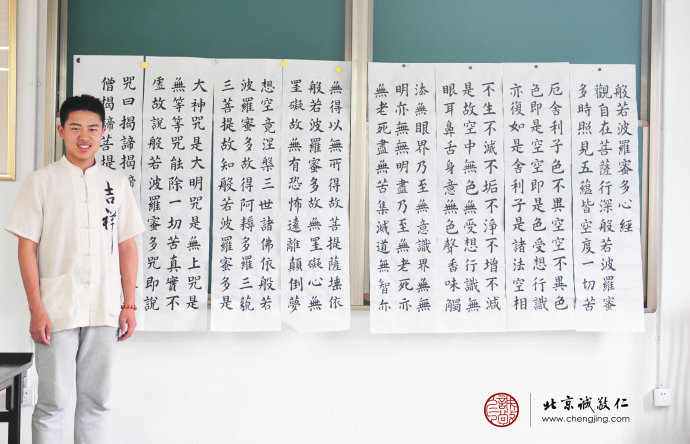 般若波羅蜜多心經
觀自在菩薩行深般若波羅蜜
多時照見五蘊皆空度一切苦
厄舍利子色不異空空不異色
色即是空空即是色受想行識
亦復如是舍利子是諸法空相
不生不滅不垢不淨不增不減
是故空中無色無受想行識無
眼耳鼻舌身意無色聲香味觸
法無眼界乃至無意識界無無
明亦無無明盡乃至無老死亦
無老死盡無苦集滅道無智亦
無得以無所得故菩提薩埵依
般若波羅蜜多故無罣礙心無
罣礙故無有恐怖遠離顛倒夢
想究竟涅槃三世諸佛依般若
波羅蜜多故得阿耨多羅三藐
三菩提故知般若波羅蜜多是
大神咒是大明咒是無上咒是
無等等咒能除一切苦真實不
虛故說般若波羅蜜多咒即說
咒曰揭諦揭諦
僧揭諦菩提
吉祥
北京誠敬仁
www.chengjing.com